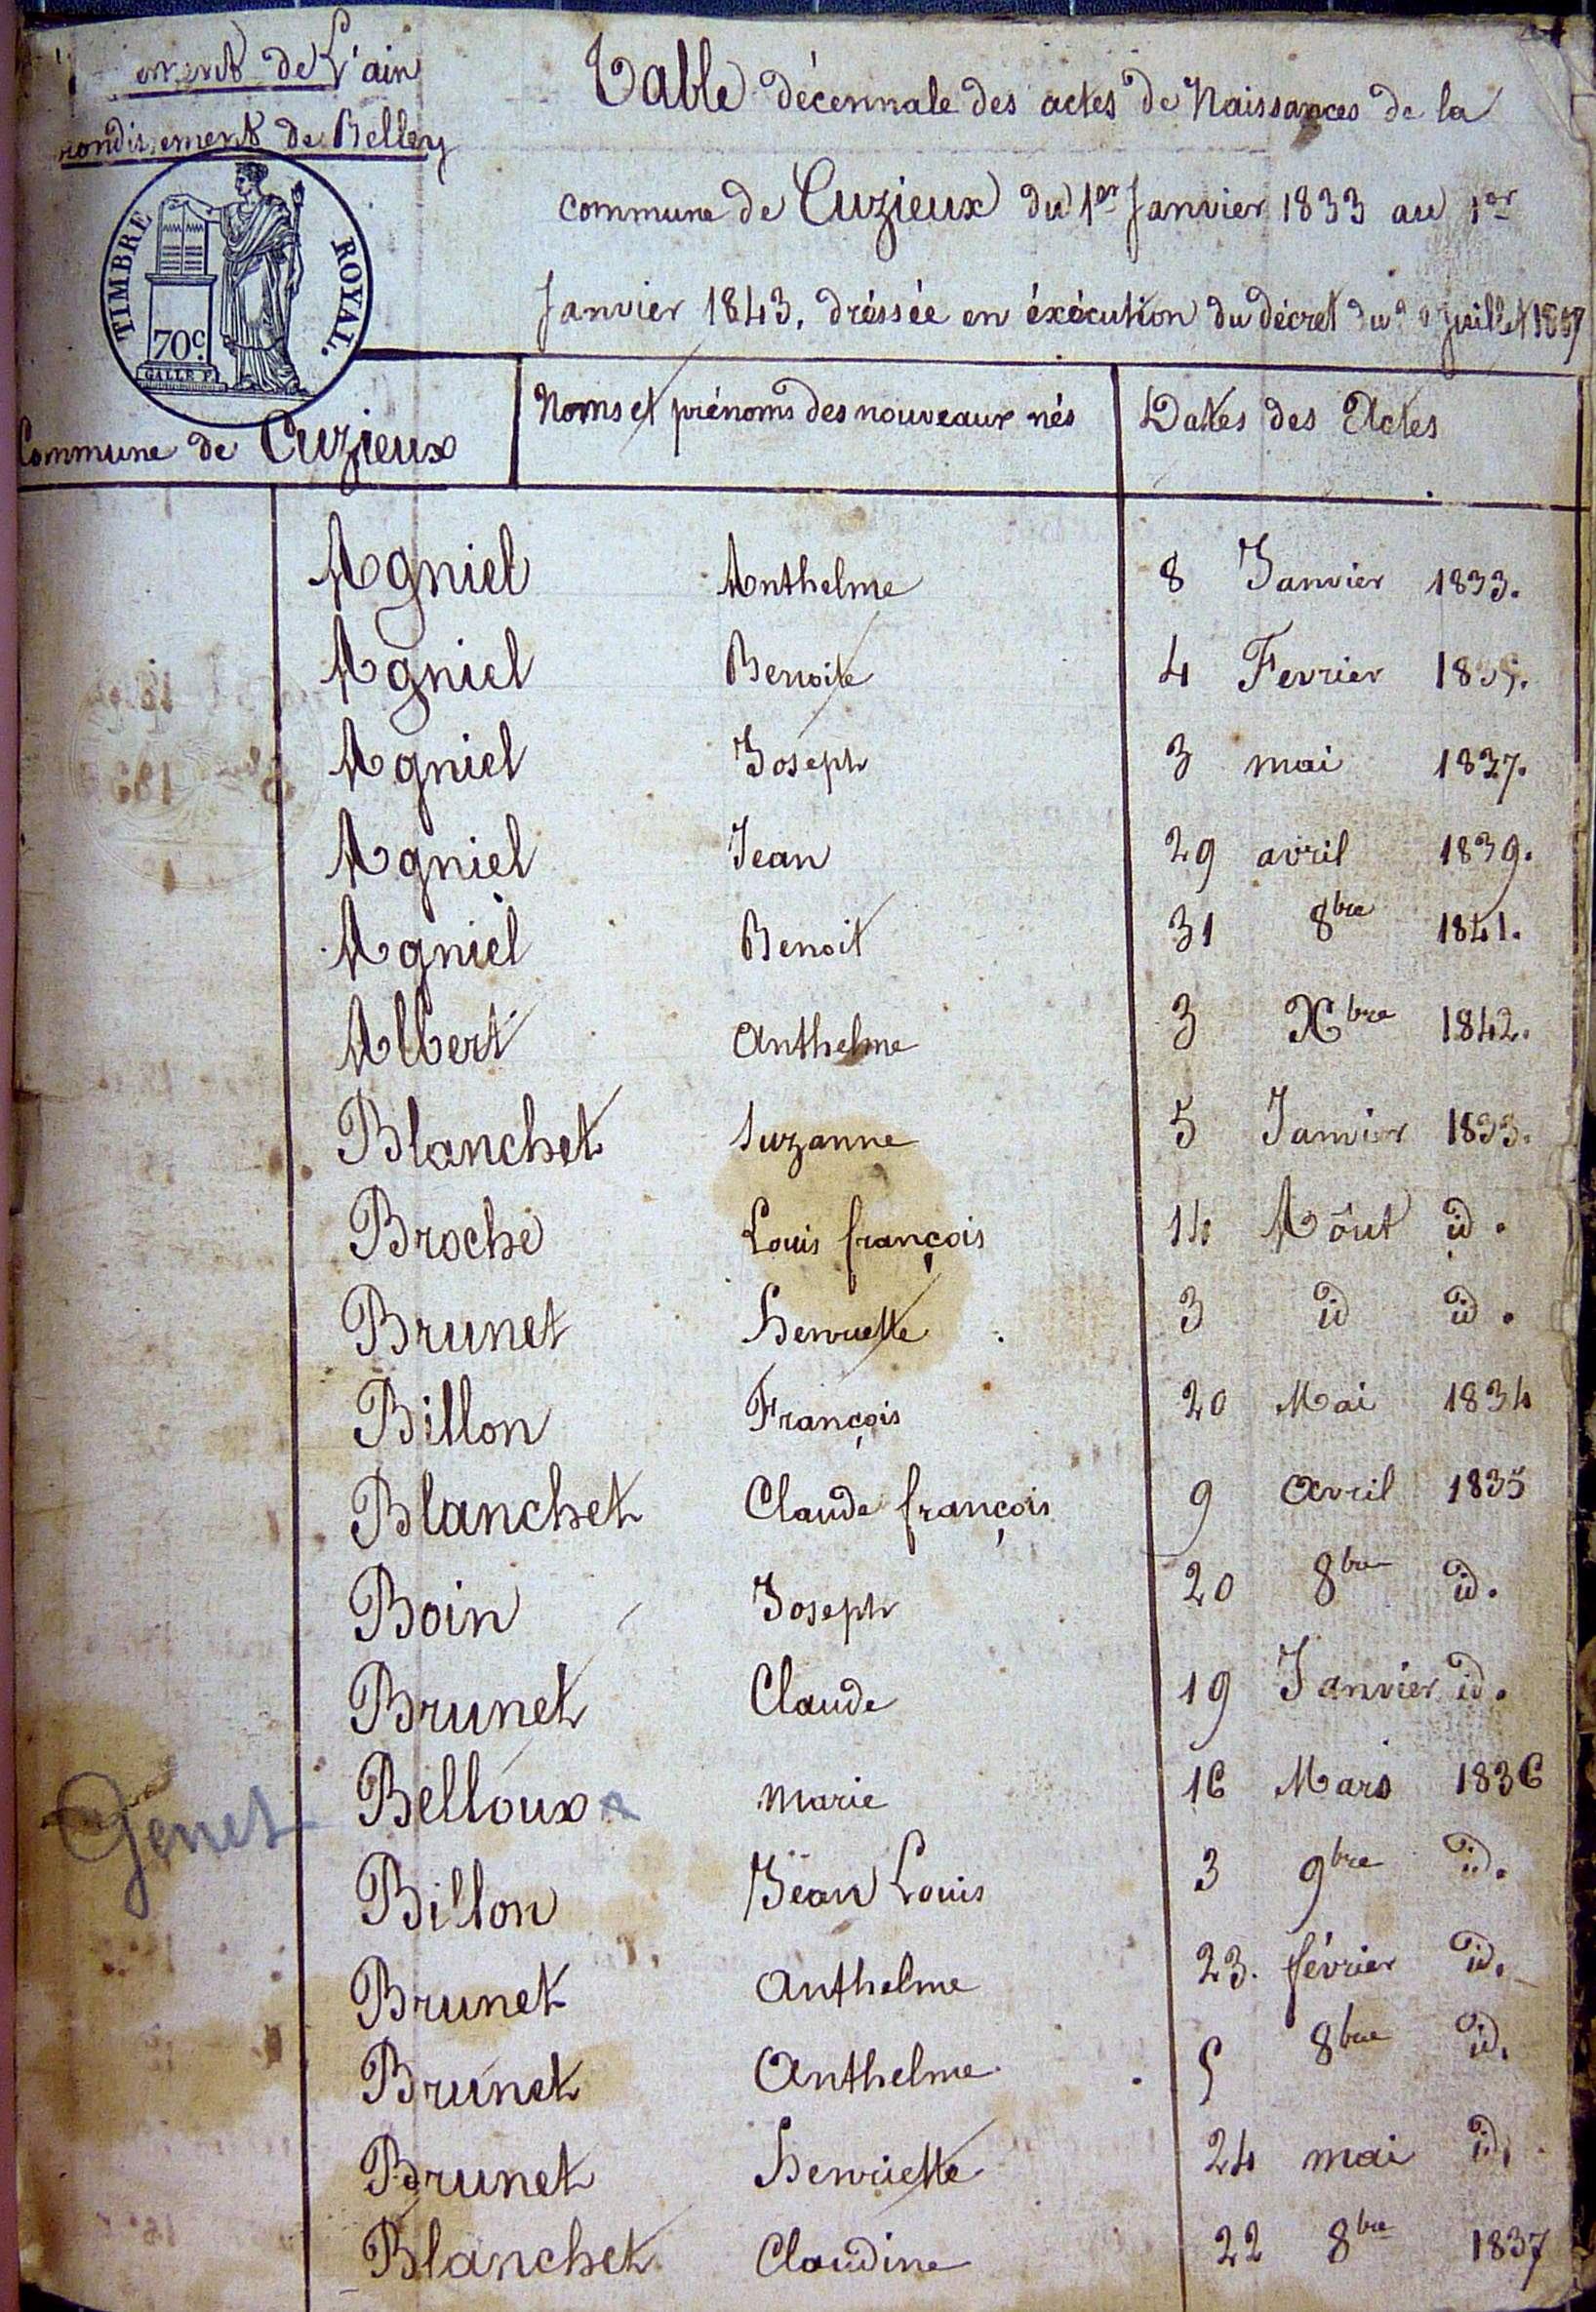 ement de L'ain
rondissement de Belley
Table décennale des actes de Naissances de la
commune de Cuzieux du 1er Janvier 1833 au 1er
Janvier 1843, dréssée en éxécution du décret du juillet 1807
TIMBRE ROYAL.
70c.
GALLE F.
Commune de Cuzieux
Noms et prénoms des nouveaux nés
Dates des Actes
Agniel Anthelme 8 Janvier 1833.
Agniel Benoite 4 Fevrier 1835.
Agniel Joseph 3 mai 1837.
Agniel Jean 29 avril 1839.
Agniel Benoit 31 8bre 1841.
Albert Anthelme 3 Xbre 1842.
Blanchet Suzanne 5 Janvier 1833.
Broche Louis françois 14 Aôut id.
Brunet henriette 3 id id.
Billon François 20 Mai 1834
Blanchet Claude françois 9 Avril 1835
Boin Joseph 20 8bre id.
Brunet Claude 19 Janvier id.
Belloux marie 16 Mars 1836
Genet
Billon Jean Louis 3 9bre id.
Brunet Anthelme 23. février id.
Brunet Anthelme 5 8bre id.
Brunet henriette 24 mai id.
Blanchet Claudine 22 8bre 1837